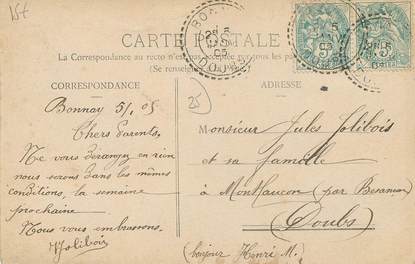 15f
CARTE POSTALE
La Correspondance au recto n'est pas acceptée par tous les pays
(Se renseigner
CORRESPONDANCE
ADRESSE
25
Bonnay 5/1 05
Chers parents,
Ne vous dérangez en rien
nous serons dans les mêmes
conditions, la semaine
prochaine
Nous vous embrassons.
Jolibois
Monsieur Jules Jolibois
et sa famille
à Montfaucon (par Besançon)
Doubs
(bonjour Henri M.)